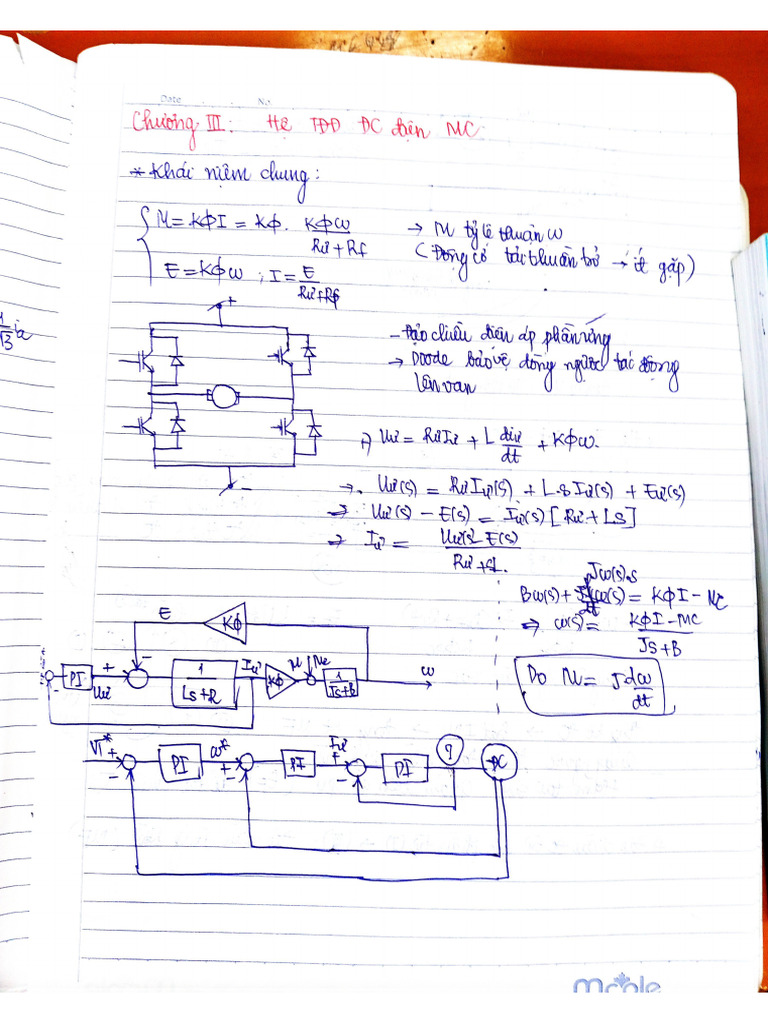 Date No.
Chương III: Hệ TĐĐ ĐC điện MC
* Khái niệm chung:
M = KΦI = KΦ. KΦω / Rư + Rf → M tỷ lệ thuận ω
E = KΦω ; I = E / Rư+Rf (Động cơ tải thuần trở → ít gặp)
+
- Đảo chiều điện áp phần ứng
→ Diode bảo vệ dòng ngược tác động
lên van
Uư = RưIư + L diư/dt + KΦω.
-
→ Uư(s) = RưIư(s) + L.s Iư(s) + Eư(s)
→ Uư(s) - E(s) = Iư(s) [Rư + Ls]
→ Iư = Uư(s) - E(s) / Rư + sL.
Jω(s).s
Bω(s) + = KΦI - MC
→ ω(s) = KΦI - MC / Js + B
Do M = J dω/dt
E KΦ
- PI Uư + - 1 / Ls + R Iư KΦ M Mc 1 / Js+B ω
VT* + - PI ω* + - PI Iư + - PI ĐC
1/√3 ia
mcple